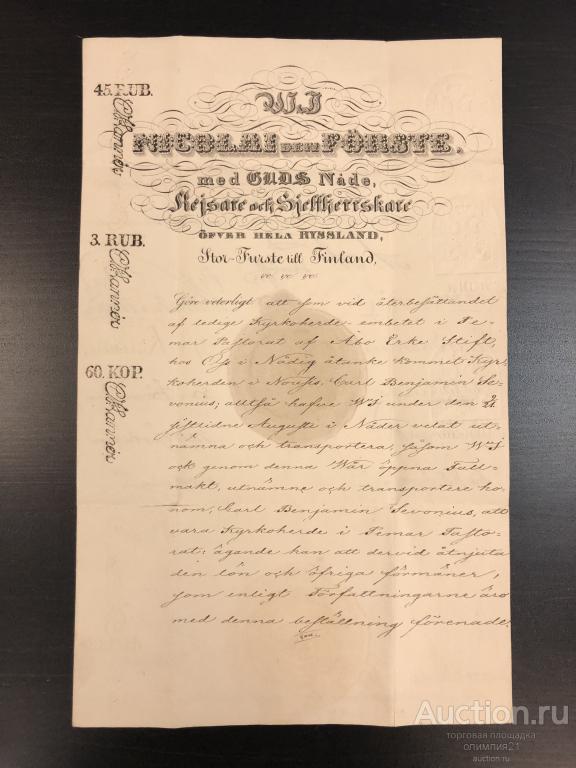 45. RUB.
3. RUB.
60. KOP.
WI
NICOLAI DEN FÖRSTE,
med GUDS Nåde,
Kejsare och Sjelfherrskare
ÖFVER HELA RYSSLAND,
Stor-Furste till Finland,
&c &c &c
Göre veterligt att som vid återbesättandet
af lediga Kyrkoherde-embetet i Te-
mar Pastorat af Åbo Erke Stift,
hos Oss i Nådig åtanke kommit Kyr-
koherden i Nousis, Carl Benjamin Se-
vonius; alltså hafve WI under den
sistlidne Augusti i Nåder velat ut-
nämna och transportera, såsom WI
ock genom denna Wår öppna Full-
makt, utnämne och transportere ho-
nom, Carl Benjamin Sevonius, att
vara Kyrkoherde i Temar Pasto-
rat: ägande han att dervid åtnjuta
den lön och öfriga förmåner,
som enligt Författningarne äro
med denna beställning förenade.
Auction.ru
торговая площадка
олимпия21
auction.ru